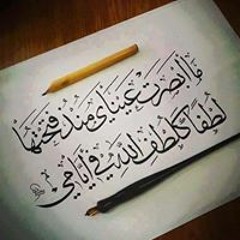 ما أبصرت عيناي منذ فتحتها
لطفاً كلطف الله في أيامي